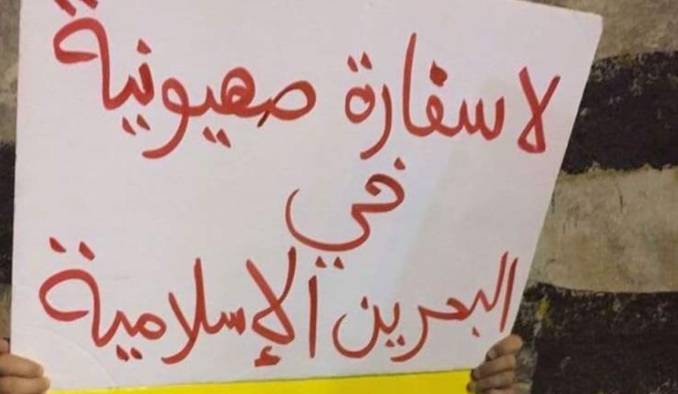 لا سفارة صهيونية
في
البحرين الإسلامية